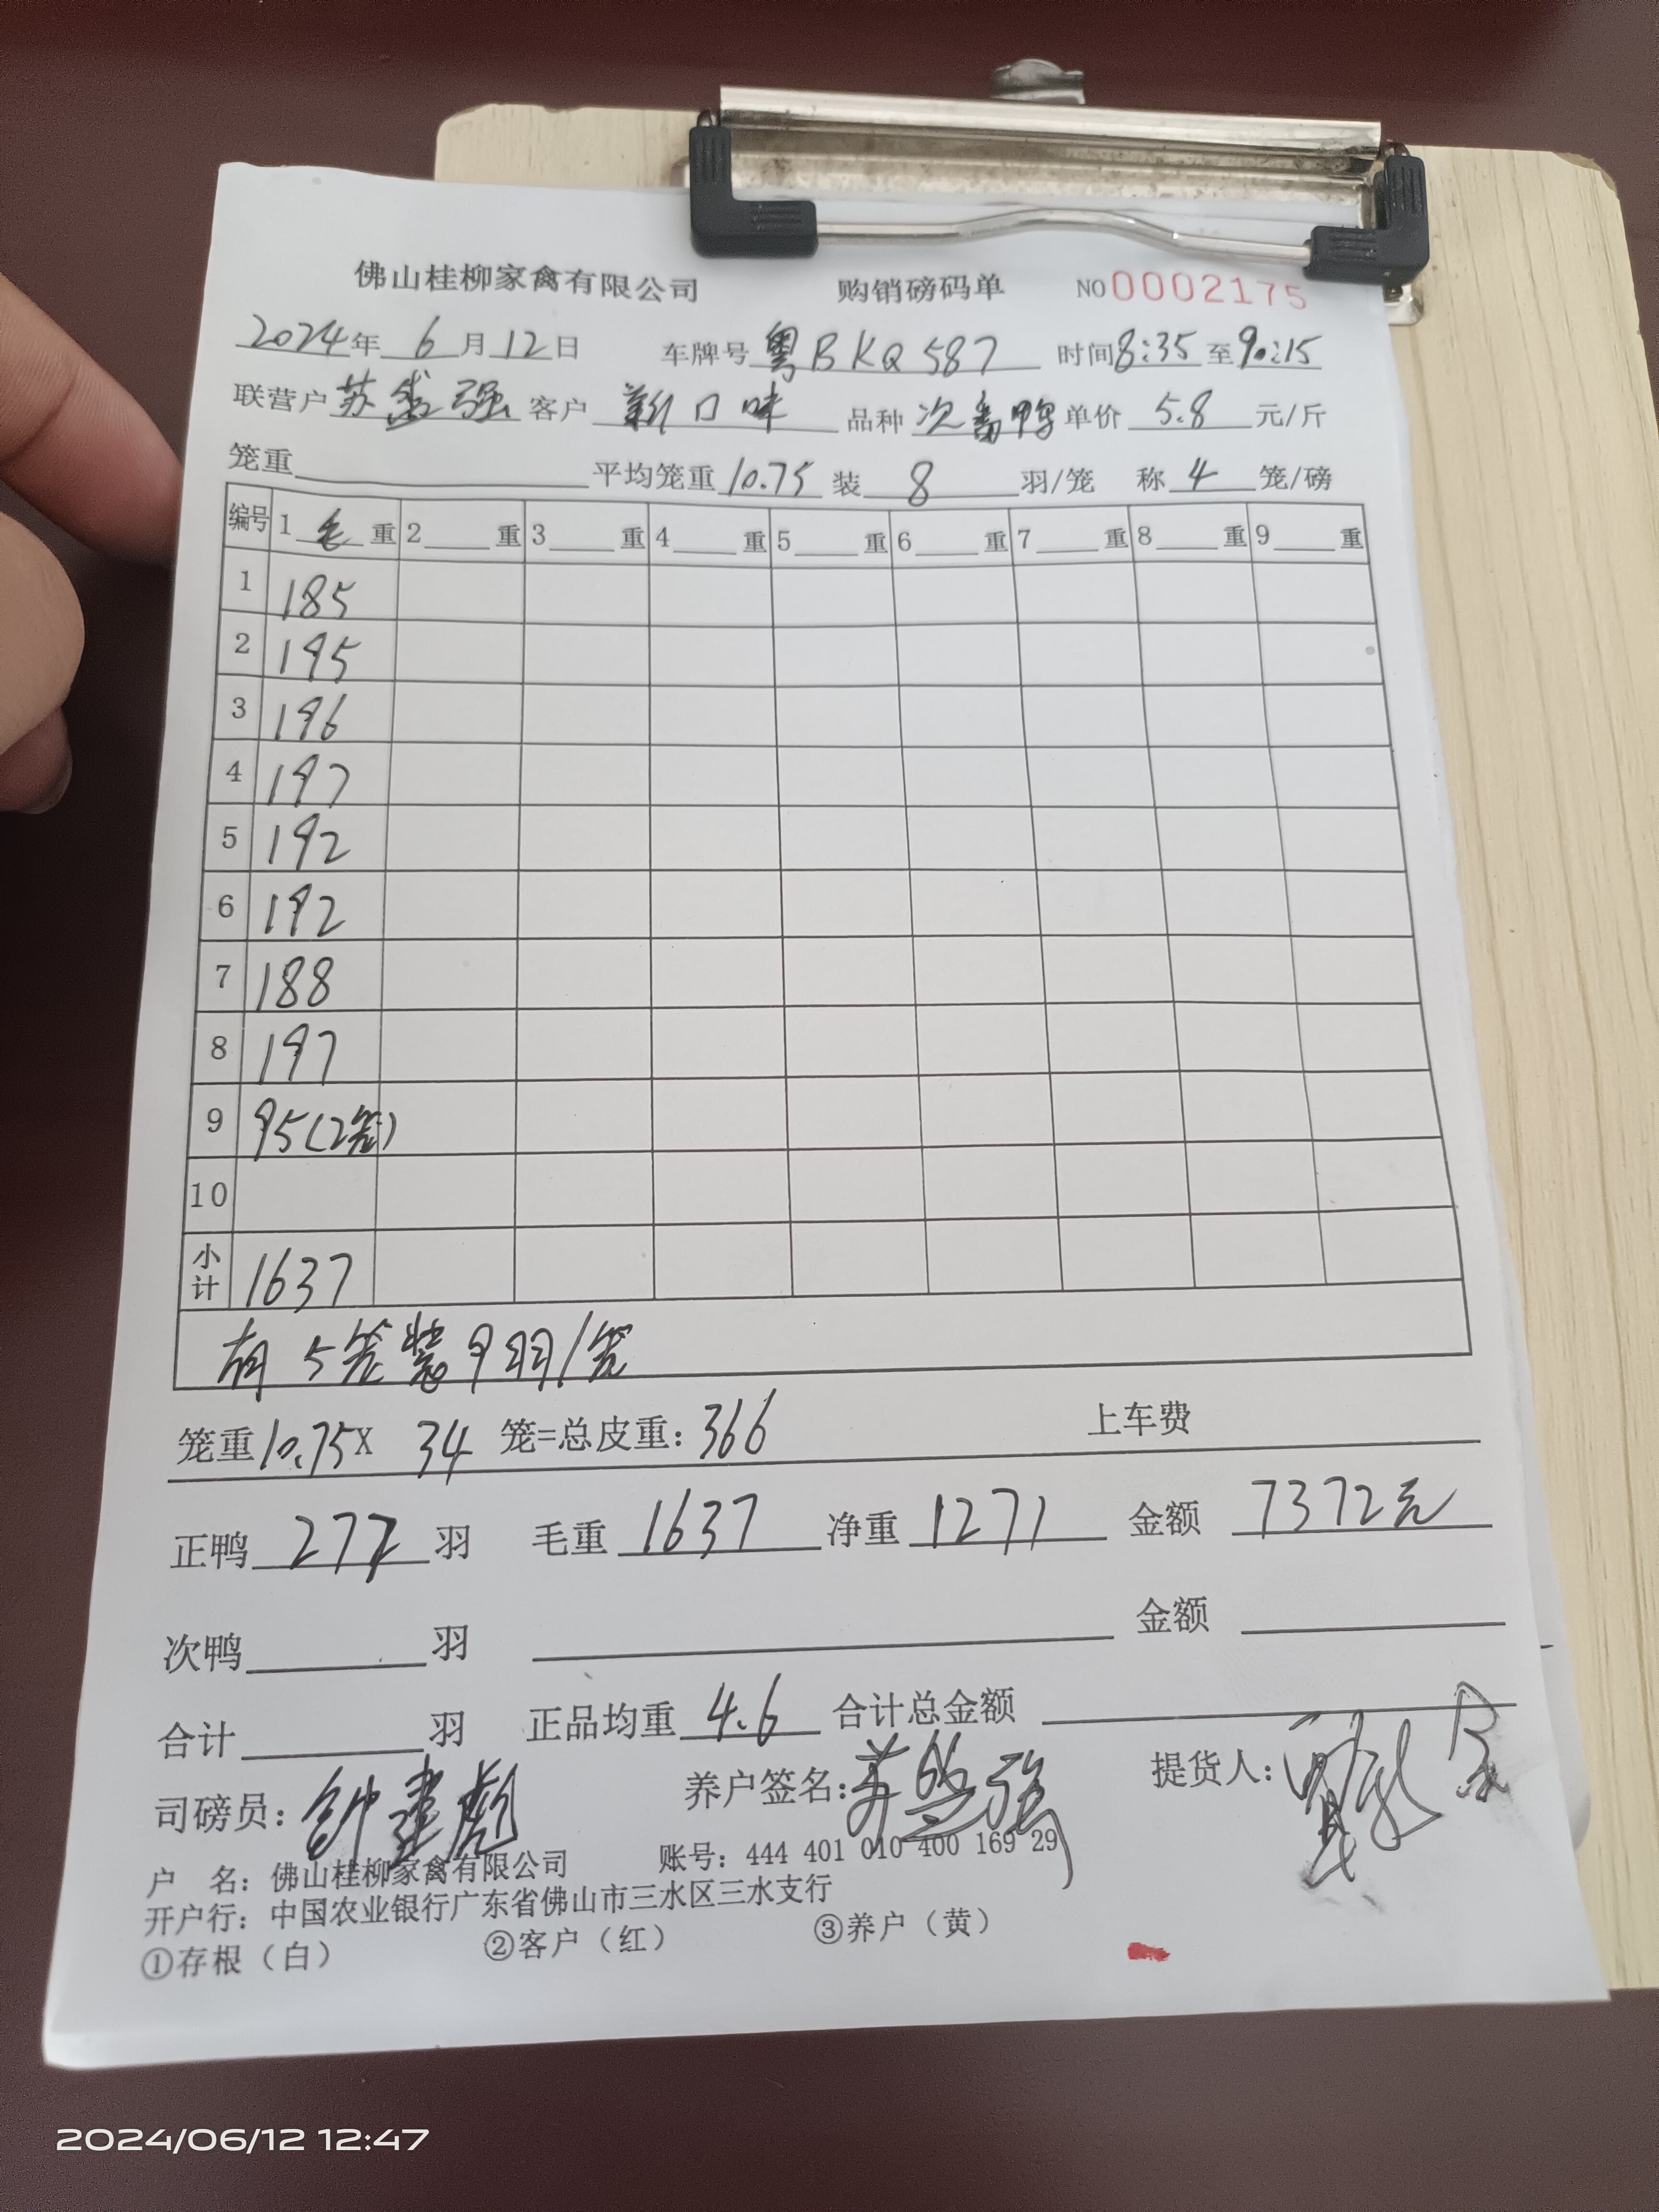 佛山桂柳家禽有限公司 购销磅码单 NO 0002175
2024年 6 月 12 日 车牌号 粤BKQ587 时间 8:35 至 9:15
联营户 苏盛强 客户 新口味 品种 次番鸭 单价 5.8 元/斤
笼重 平均笼重 10.75 装 8 羽/笼 称 4 笼/磅
编号 1 毛 重 2 重 3 重 4 重 5 重 6 重 7 重 8 重 9 重
1 185
2 195
3 196
4 197
5 192
6 192
7 188
8 197
9 95(2笼)
10
小计 1637
有 5笼装9羽/笼
笼重 10.75 X 34 笼=总皮重: 366 上车费
正鸭 277 羽 毛重 1637 净重 1271 金额 7372元
次鸭 羽 金额
合计 羽 正品均重 4.6 合计总金额
司磅员: 钟建彪 养户签名: 苏盛强 提货人:
户 名: 佛山桂柳家禽有限公司 账号: 444 401 010 400 169 29
开户行: 中国农业银行广东省佛山市三水区三水支行
①存根（白） ②客户（红） ③养户（黄）
2024/06/12 12:47